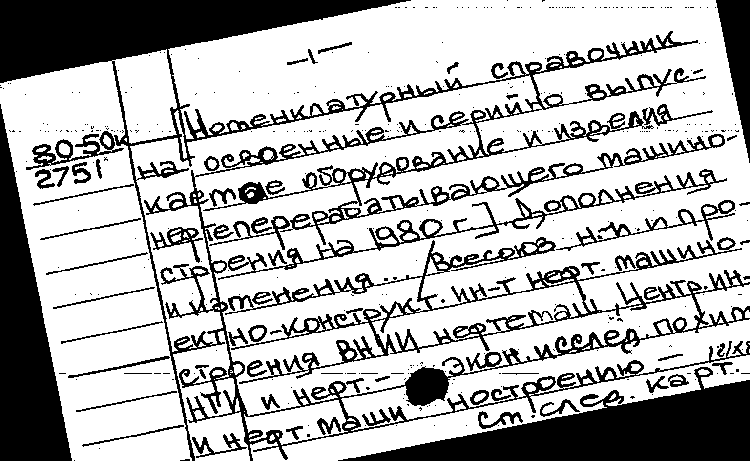 — 1 —
[Номенклатурный справочник
80-50к
2751
на освоенные и серийно выпус-
каемое оборудование и изделия
нефтеперерабатывающего машино-
строения на 1980 г.]. Дополнения
и изменения... Всесоюз. н.-и. и про-
ектно-конструкт. ин-т нефт. машино-
строения ВНИИнефтемаш. Центр. ин-
НТИ и нефт.- экон. исслед. по хим.
и нефт. машиностроению. —
см. след. карт.